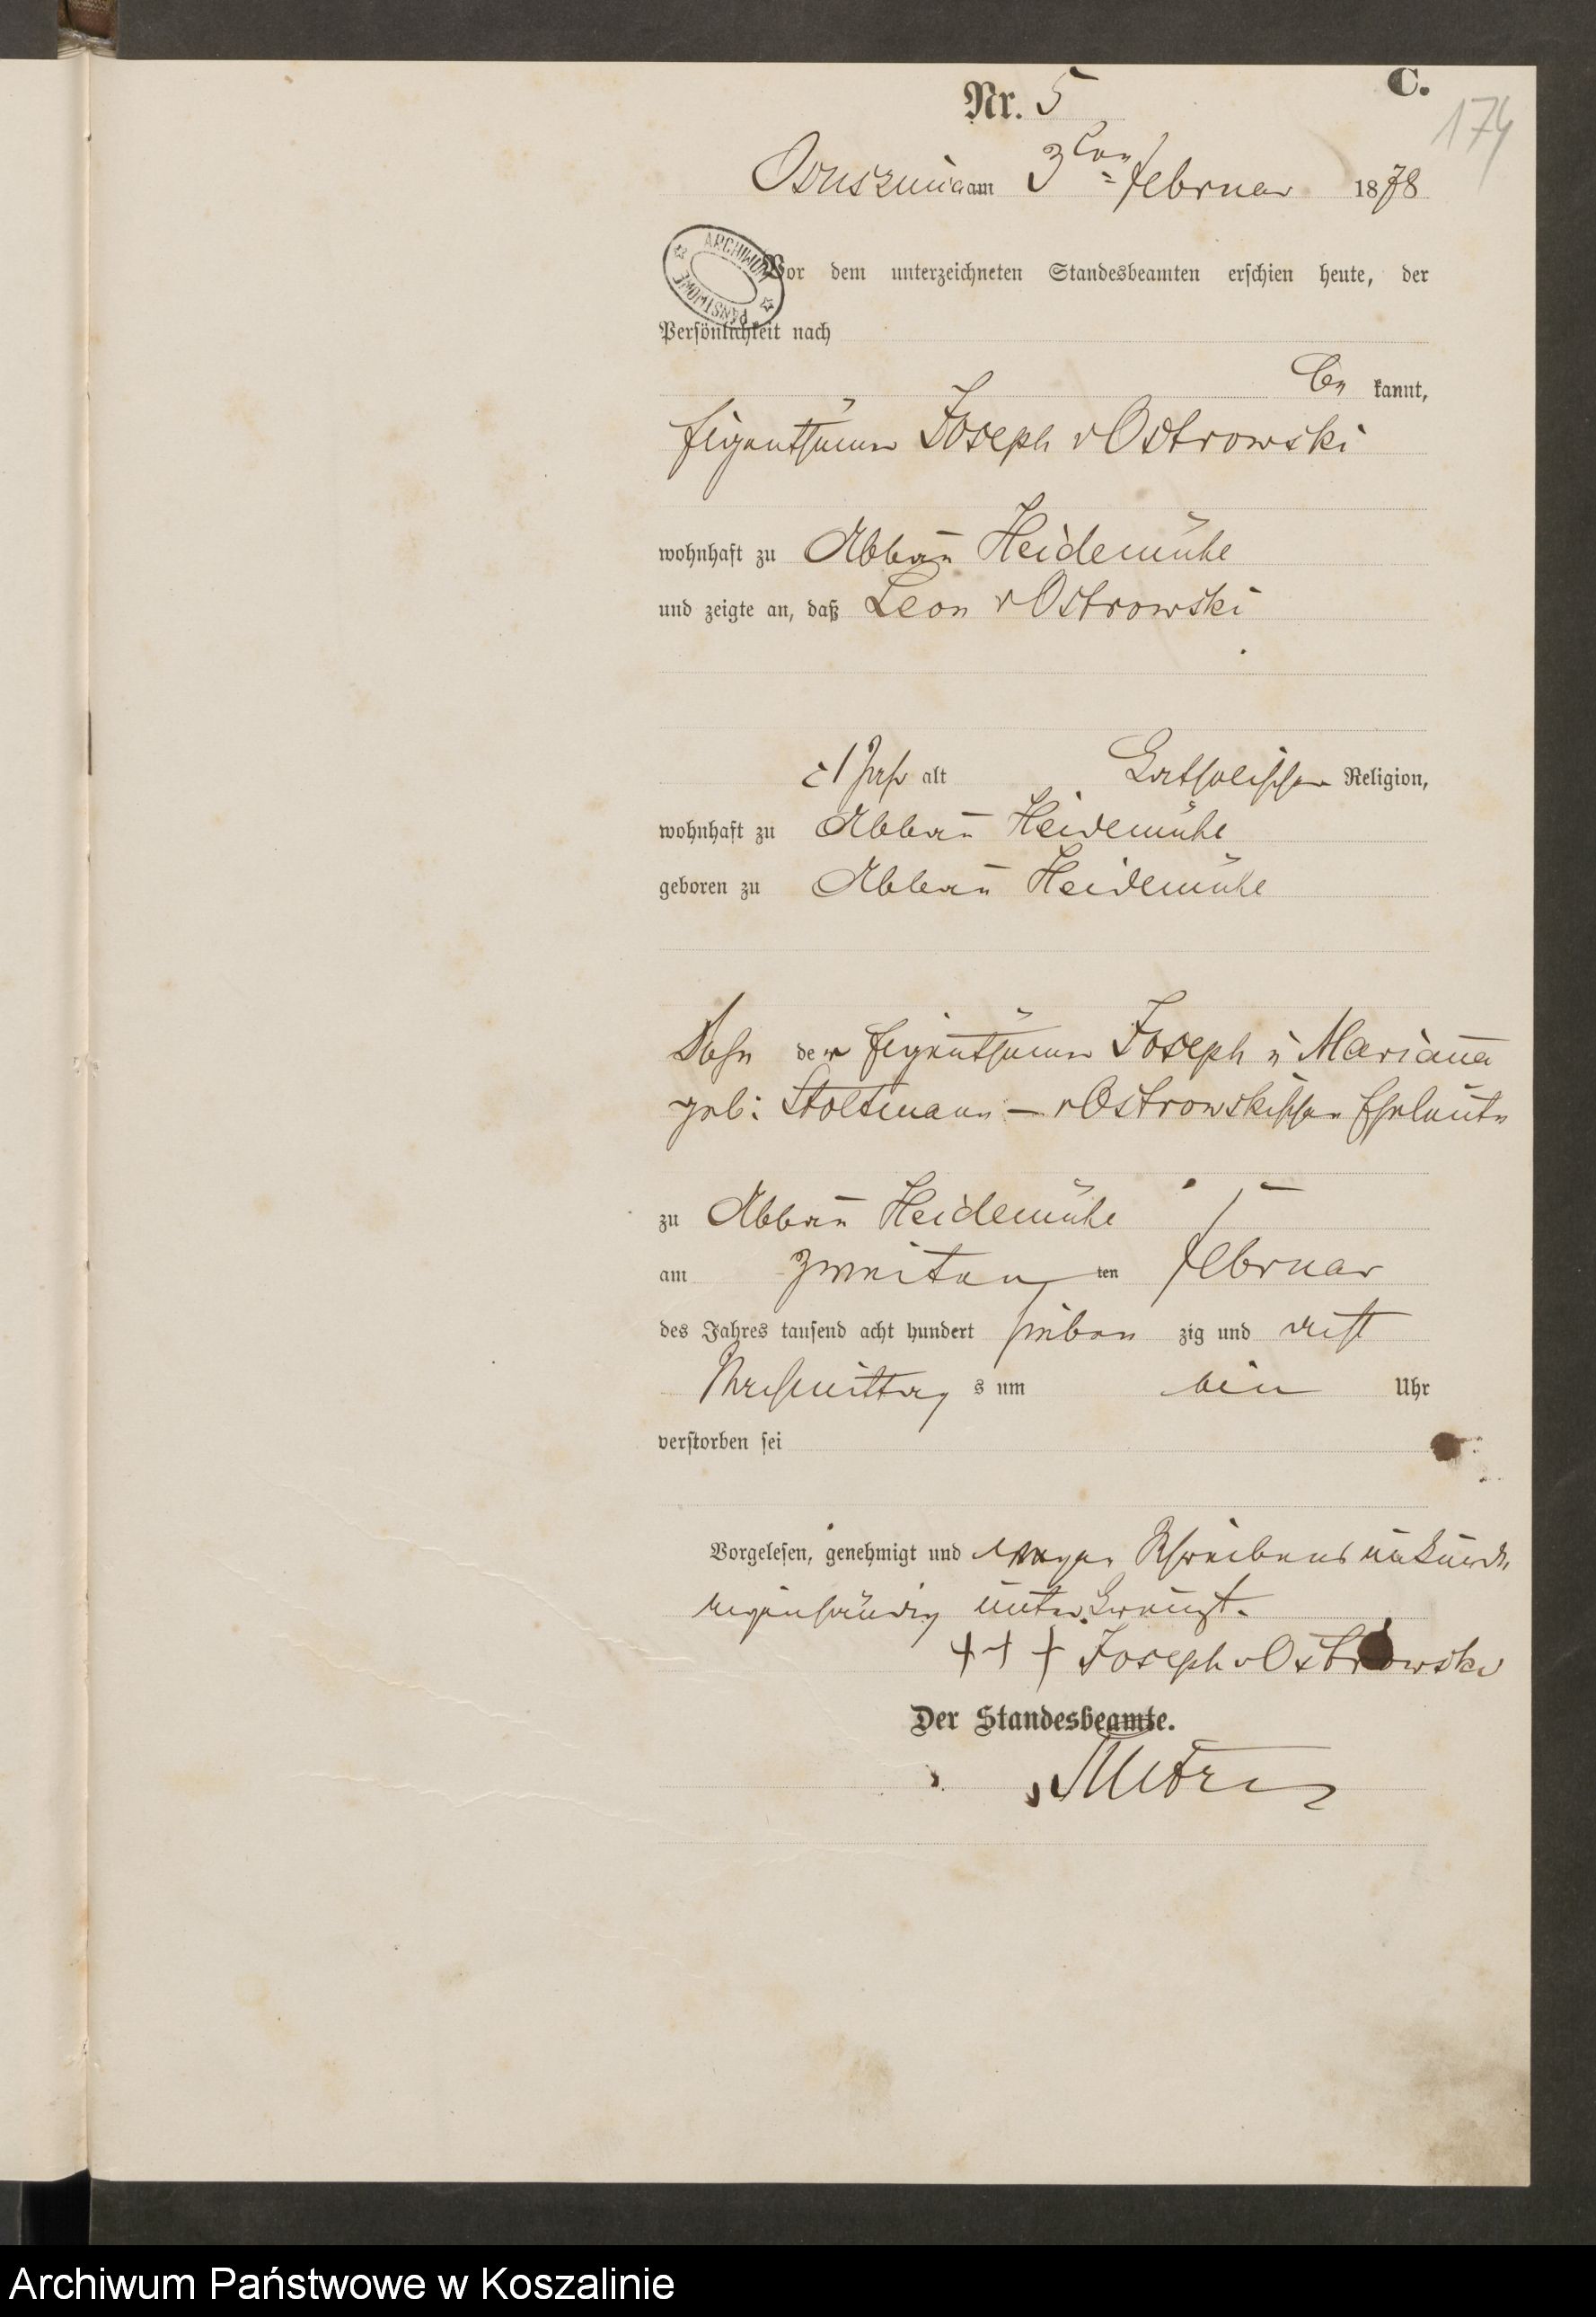 C.
Nr. 5
174
Osuszniza am 3ten Februar 1878
ARCHIWUM PAŃSTWOWE
Vor dem unterzeichneten Standesbeamten erschien heute, der
Persönlichkeit nach
be kannt,
Eigenthümer Joseph v Ostrowski
wohnhaft zu Abbau Heidemühe
und zeigte an, daß Leon v Ostrowski
1 Jahr alt Katholischer Religion,
wohnhaft zu Abbau Heidemühe
geboren zu Abbau Heidemühe
Sohn der Eigenthümer Joseph u Mariana
geb: Stoltmann – v Ostrowskischen Eheleute
zu Abbau Heidemühe
am zweiten ten Februar
des Jahres tausend acht hundert sieben zig und acht
Nachmittag s um ein Uhr
verstorben sei
Vorgelesen, genehmigt und wegen Schreibens unkunde
eigenhändig unterkreuzt.
+ + + Joseph v Ostrowski
Der Standesbeamte.
Archiwum Państwowe w Koszalinie